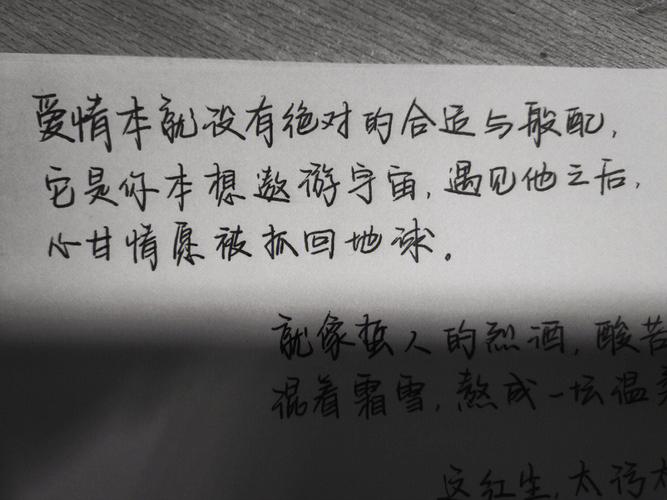 爱情本就没有绝对的合适与般配，
它是你本想遨游宇宙，遇见他之后，
心甘情愿被抓回地球。
就像蜇人的烈酒，酸苦
混着霜雪，熬成一坛温
这红尘，太